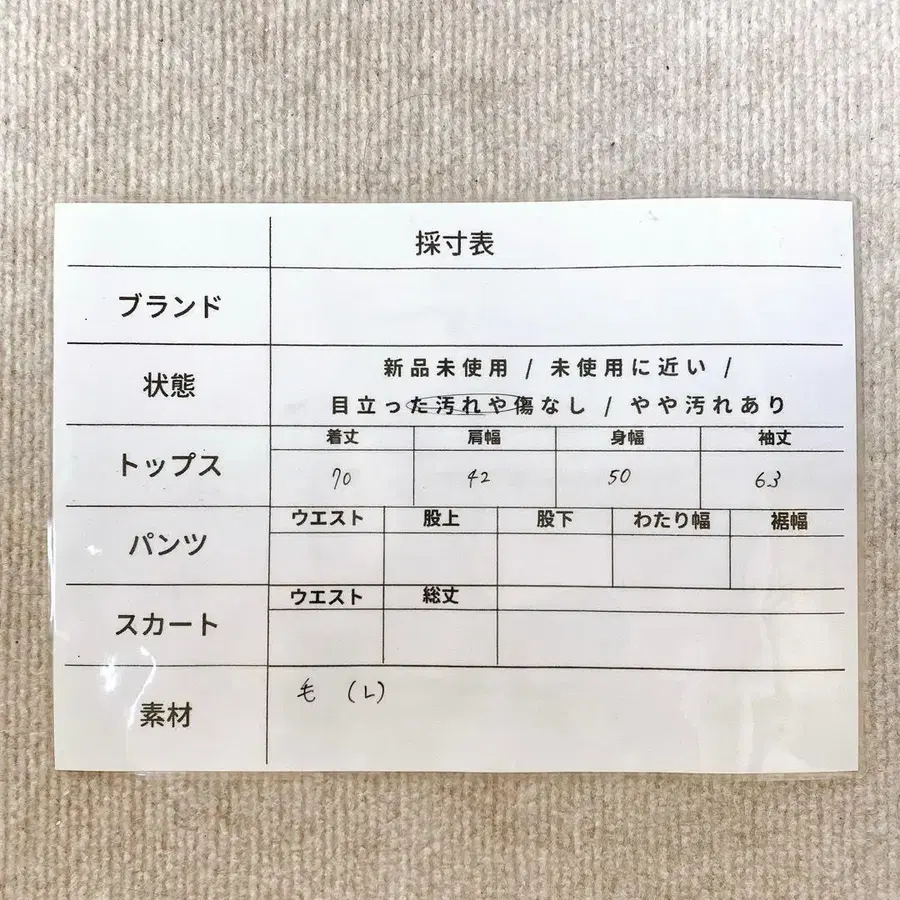 採寸表
ブランド
状態
新品未使用 / 未使用に近い /
目立った汚れや傷なし / やや汚れあり
トップス
着丈 肩幅 身幅 袖丈
70 42 50 63
パンツ
ウエスト 股上 股下 わたり幅 裾幅
スカート
ウエスト 総丈
素材
毛 (L)